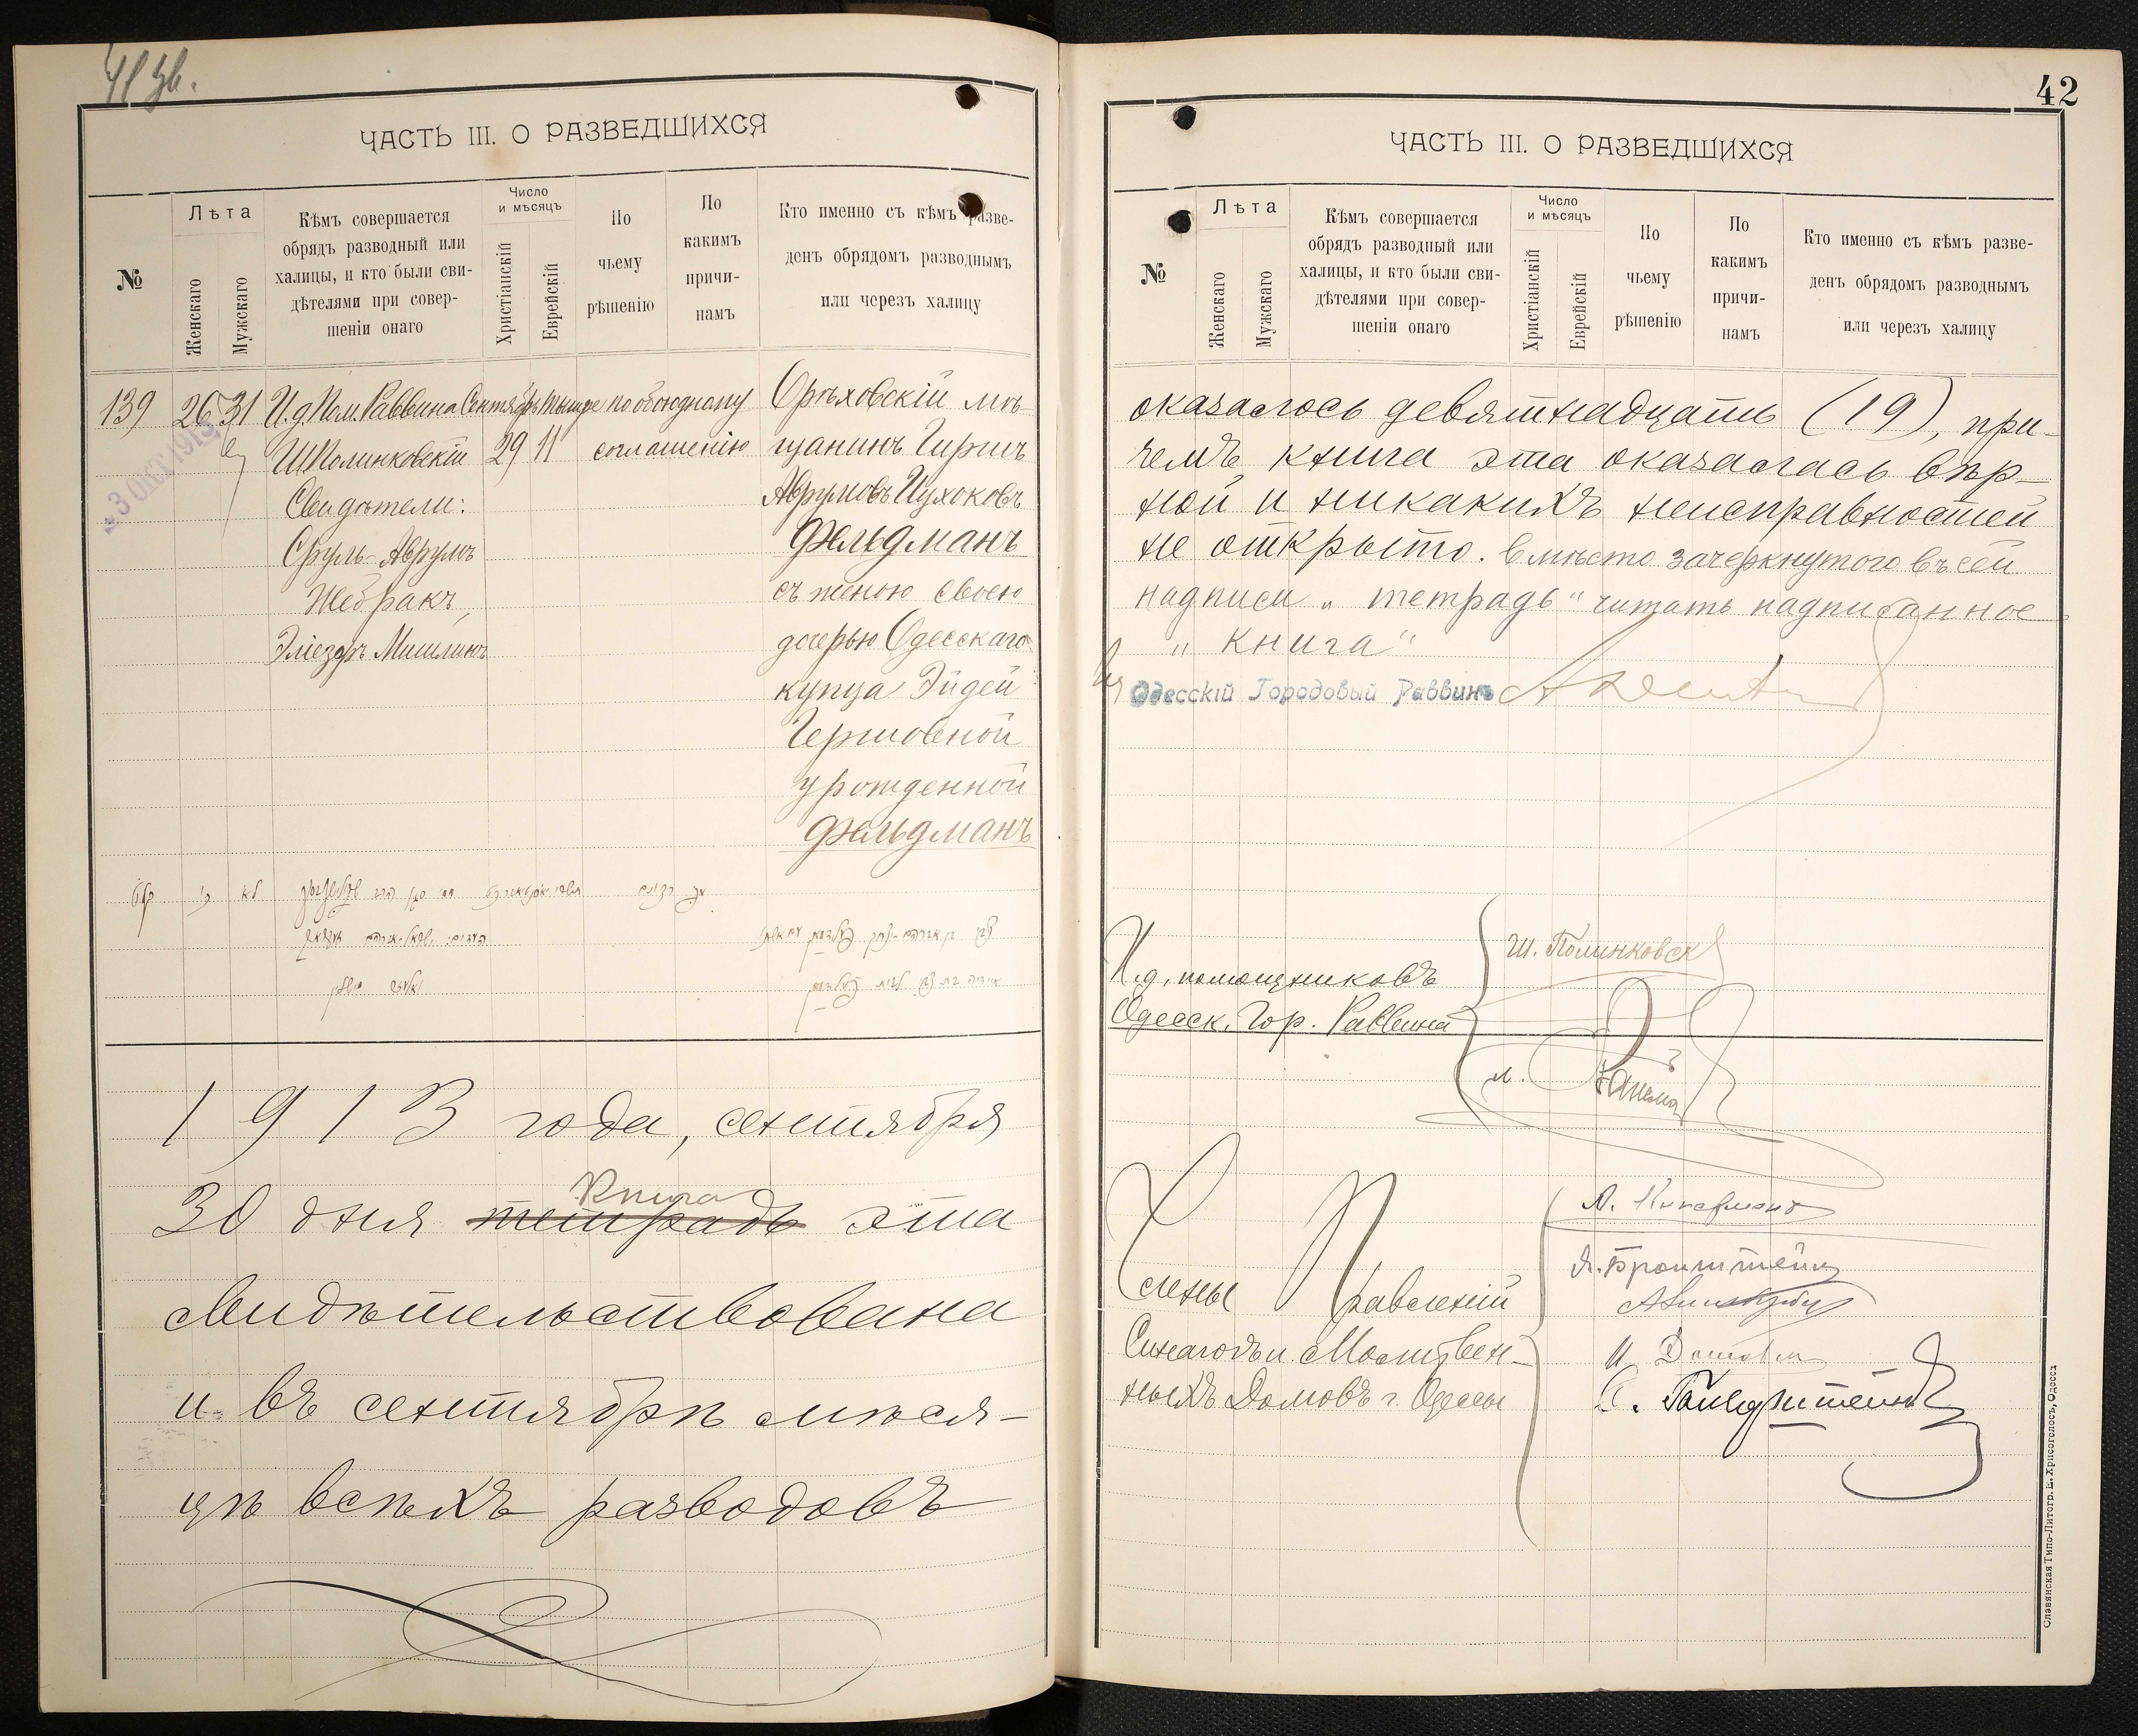 41 зв.
ЧАСТЬ III. О РАЗВЕДШИХСЯ
№
Лѣта
Женскаго
Мужскаго
Кѣмъ совершается
обрядъ разводный или
халицы, и кто были сви-
дѣтелями при совер-
шеніи онаго
Число
и мѣсяцъ
Христіанскій
Еврейскій
По
чьему
рѣшенію
По
какимъ
причи-
намъ
Кто именно съ кѣмъ разве-
денъ обрядомъ разводнымъ
или черезъ халицу
139 26 31 И.д. Пом. Раввина Сентябрь Тишре по обоюдному Орѣховскій мѣ-
Ш Полинковскій 29 11 соглашенію щанинъ Гиршъ
3 ОКТ 1913
Свидѣтели: Аврумовъ Цухоковъ
Сруль-Аврумъ Фельдманъ
Жебракъ, съ женою своею
Эліезеръ Мишлинъ дочерью Одесскаго
купца Эйдей
Гершовной
урожденной
Фельдманъ
1913 года, сентября
Книга
30 дня тетрадь эта
свидѣтельствована
и въ сентябрѣ мѣся-
цѣ всѣхъ разводовъ
42
ЧАСТЬ III. О РАЗВЕДШИХСЯ
№
Лѣта
Женскаго
Мужскаго
Кѣмъ совершается
обрядъ разводный или
халицы, и кто были сви-
дѣтелями при совер-
шеніи онаго
Число
и мѣсяцъ
Христіанскій
Еврейскій
По
чьему
рѣшенію
По
какимъ
причи-
намъ
Кто именно съ кѣмъ разве-
денъ обрядомъ разводнымъ
или черезъ халицу
оказалось девятнадцать (19), при-
чемъ книга эта оказалась вѣр-
ной и никакихъ неисправностей
не открыто. Вмѣсто зачеркнутого въ сей
надписи „тетрадь" читать надписанное
„книга"
Одесскій Городовый Раввинъ
И.д. помощниковъ Ш. Полинковск
Одесск. Гор. Раввина
Члены Правленій
Синагогъ и Молитвен-
ныхъ Домовъ г. Одессы
Я. Бронштейнъ
Славянская Типо-Литогр. Е. Хрисогелосъ, Одесса